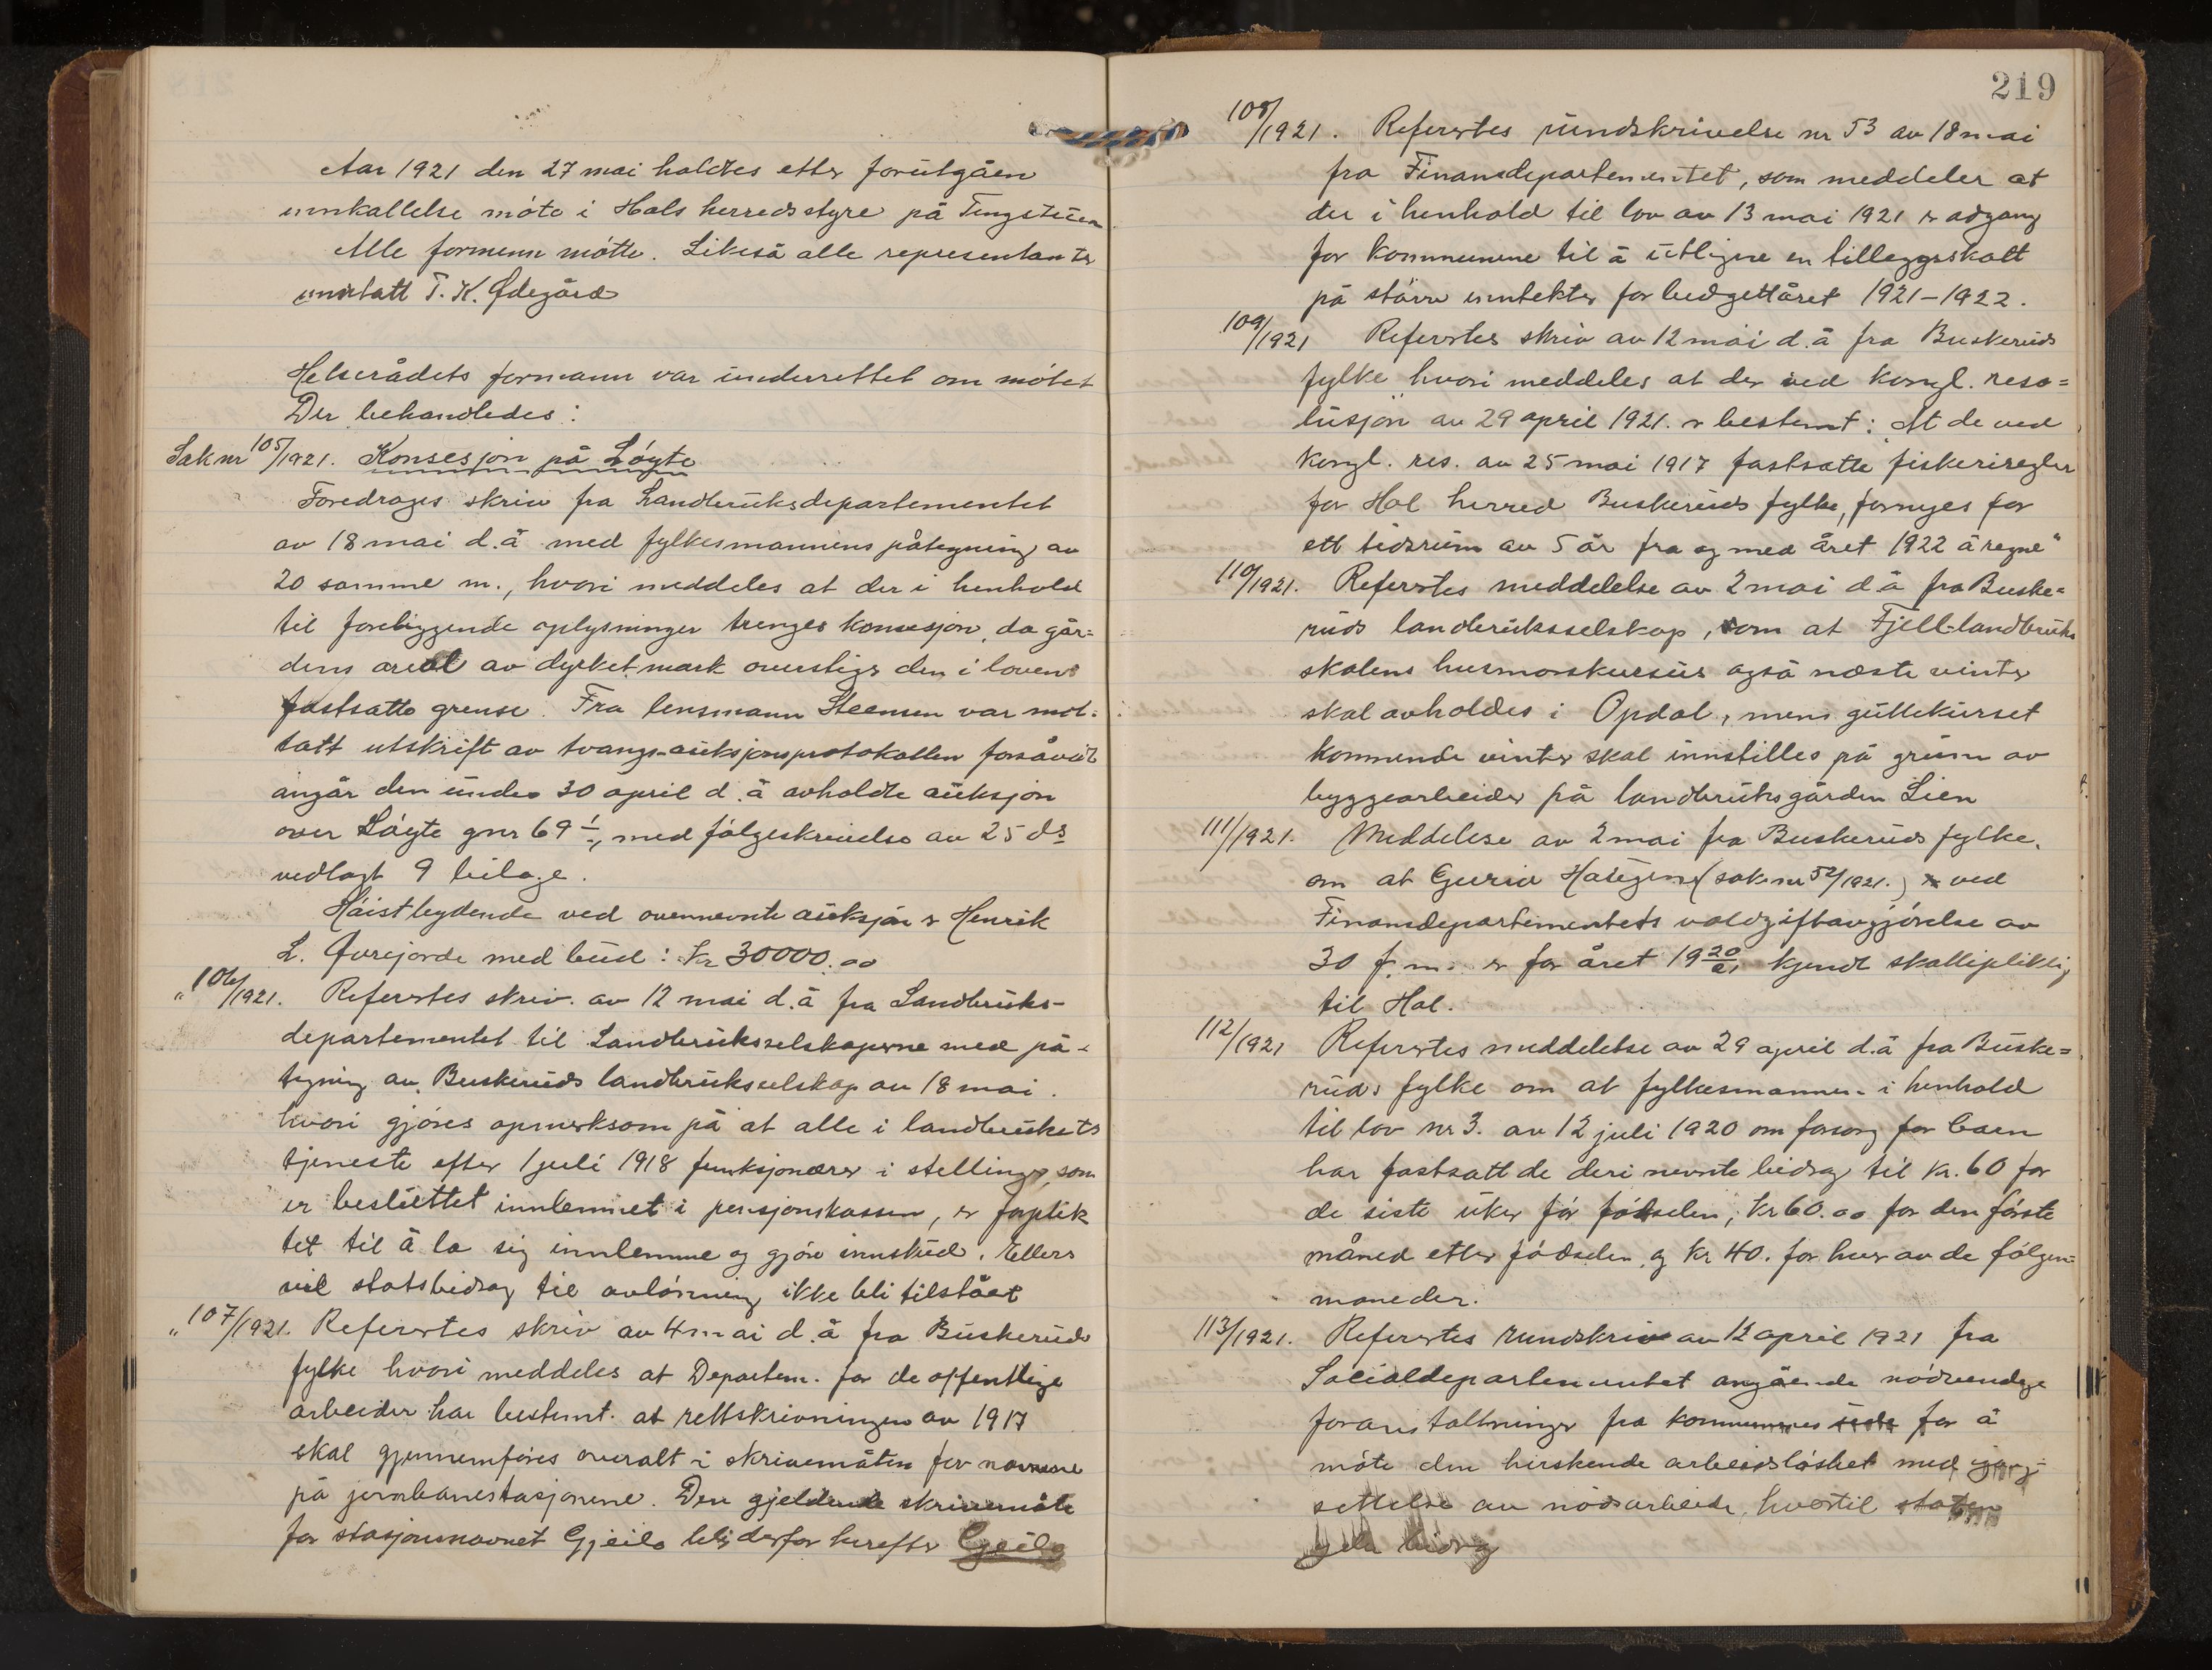 Aar 1921 den 27 mai holdtes etter forutgåen
innkallelse møte i Hols herredsstyre på Tingstuen
Alle formenn møtte. Likeså alle representanter
unntatt T. K. Ødegård
Helserådets formann var underrettet om møtet
Der behandledes:
Sak nr 105/1921. Konsesjon på Løyte
Foredroges skriv fra Landbruksdepartementet
av 18 mai d.å med fylkesmannens påtegning av
20 samme m., hvori meddeles at der i henhold
til foreliggende oplysninger trenges konsesjon, da går=
dens areal av dyrket mark overstiger den i lovens
fastsatte grense. Fra lensmann Steensen var mot-
tatt utskrift av tvangs-auksjonsprotokollen forsåvidt
angår den under 30 april d.å avholdte auksjon
over Løyte gnr 69/1, med følgeskrivelse av 25 ds
vedlagt 9 bilage.
Høistbydende ved ovennevnte auksjon er Henrik
L. Øvrejorde med bud: kr 30000.00
" 106/1921. Referertes skriv. av 12 mai d.å fra Landbruks-
departementet til Landbruksselskaperne med på-
tegning av Buskeruds landbruksselskap av 18 mai.
hvori gjøres opmerksom på at alle i landbrukets
tjeneste efter 1 juli 1918 funksjonærer i stillinger, som
er besluttet innlemmet i pensjonskassen, er forplik
tet til å la sig innlemme og gjøre innskud. Ellers
vil statsbidrag til avlønning ikke bli tilstået
" 107/1921. Referertes skriv av 4 mai d.å fra Buskeruds
fylke hvori meddeles at Departem. for de offentlige
arbeider har bestemt at rettskrivningen av 1917
skal gjennemføres overalt i skrivemåten for navnene
på jernbanestasjonene. Den gjeldende skrivemåte
for stasjonsnavnet Gjeilo blir derfor herefter Geilo
219
108/1921. Referertes rundskrivelse nr 53 av 18 mai
fra Finansdepartementet, som meddeler at
der i henhold til lov av 13 mai 1921 er adgang
for kommunene til å utligne en tilleggsskatt
på større inntekter for budgettåret 1921-1922.
109/1921 Referertes skriv av 12 mai d.å fra Buskeruds
fylke hvori meddeles at der ved kongl. reso=
lusjon av 29 april 1921. er bestemt: "At de ved
kongl. res. av 25 mai 1917 fastsatte fiskeriregler
for Hol herred Buskeruds fylke, fornyes for
ett tidsrum av 5 år fra og med året 1922 å regne"
110/1921. Referertes meddelelse av 2 mai d.å fra Buske=
ruds landbruksselskap, om at Fjell-landbruks
skolens husmorskursus også næste vinter
skal avholdes i Opdal, mens guttekurset
kommende vinter skal innstilles på grunn av
byggearbeider på landbruksgården Lien
111/1921. Meddelese av 2 mai fra Buskeruds fylke.
om at Guriv Haugen (sak nr 52/1921.) er ved
Finansdepartementets voldgiftavgjørelse av
30 f.m. er for året 1920/21 kjendt skattepliktig
til Hol.
112/1921 Referertes meddelelse av 29 april d.å fra Buske=
ruds fylke om at fylkesmannen i henhold
til lov nr 3. av 12 juli 1920 om forsorg for barn
har fastsatt de deri nevnte bidrag til kr. 60 for
de siste uker før fødselen, kr 60.00 for den første
måned etter fødselen og kr 40. for hver av de følgen-
maneder.
113/1921. Referertes rundskriv av 12 april 1921 fra
Socialdepartementet angående nødvendige
foranstaltninger fra kommunenes side for å
møte den herskende arbeidsløshet med igang-
settelse av nødsarbeide, hvortil staten
yder bidrag